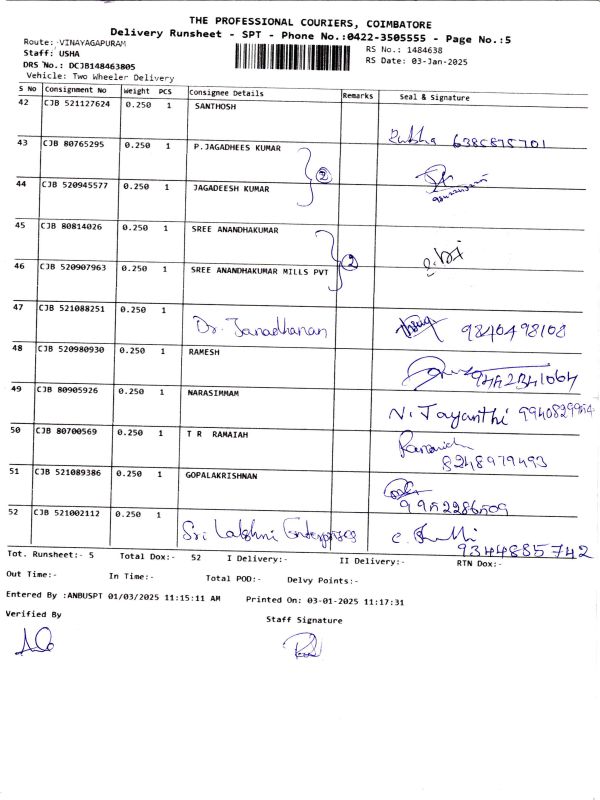 THE PROFESSIONAL COURIERS, COIMBATORE
Delivery Runsheet - SPT - Phone No.:0422-3505555 - Page No.:5
Route: VINAYAGAPURAM
Staff: USHA
RS No.: 1484638
DRS No.: DCJB148463805
RS Date: 03-Jan-2025
Vehicle: Two Wheeler Delivery
S No Consignment No Weight PCS Consignee Details Remarks Seal & Signature
42 CJB 521127624 0.250 1 SANTHOSH
43 CJB 80765295 0.250 1 P.JAGADHEES KUMAR
44 CJB 520945577 0.250 1 JAGADEESH KUMAR
2
45 CJB 80814026 0.250 1 SREE ANANDHAKUMAR
46 CJB 520907963 0.250 1 SREE ANANDHAKUMAR MILLS PVT
2
47 CJB 521088251 0.250 1 Dr. Janadhanan 9840498108
48 CJB 520980930 0.250 1 RAMESH
49 CJB 80905926 0.250 1 NARASIMMAM N. Jayanthi
50 CJB 80700569 0.250 1 T R RAMAIAH Ramaiah
8248979493
51 CJB 521089386 0.250 1 GOPALAKRISHNAN
52 CJB 521002112 0.250 1 Sri Lakshmi Enterprises
9344885742
Tot. Runsheet:- 5 Total Dox:- 52 I Delivery:- II Delivery:- RTN Dox:-
Out Time:- In Time:- Total POD:- Delvy Points:-
Entered By :ANBUSPT 01/03/2025 11:15:11 AM Printed On: 03-01-2025 11:17:31
Verified By Staff Signature